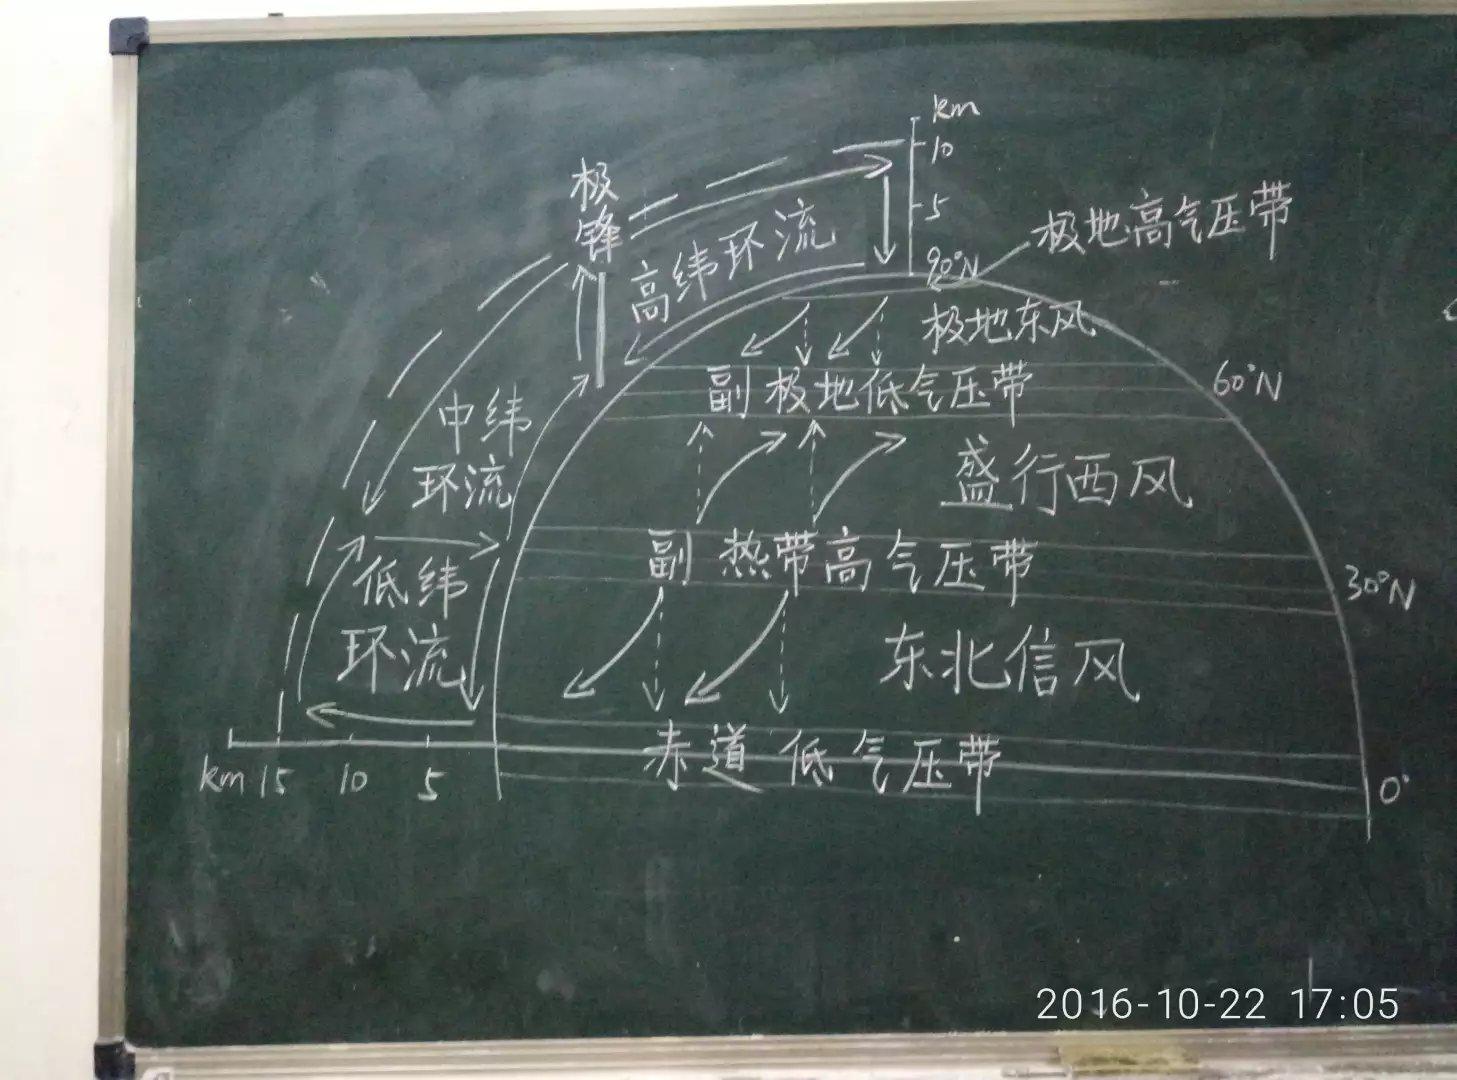 km
10
5
极锋
高纬环流
90°N
极地高气压带
极地东风
副极地低气压带
60°N
中纬
环流
盛行西风
副热带高气压带
30°N
低纬
环流
东北信风
赤道低气压带
0°
km 15 10 5
2016-10-22 17:05